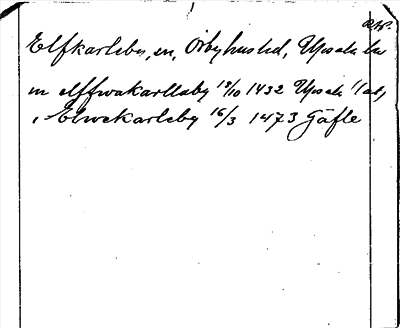 Elfkarleby, sn, Örbyhus hd, Upsala län
m elffwakarllaby 18/10 1432 Upsala
i Elwekarleby 16/3 1473 Gäfle